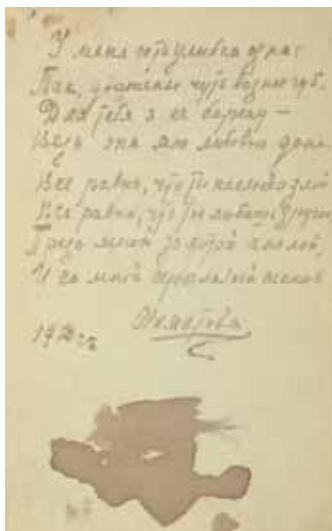 У меня есть улыбка одна:
Так, движенье чуть видное губ.
Для тебя я ее берегу —
Ведь она мне любовью дана.
Все равно, что ты наглый и злой
Все равно, что ты любишь других
Предо мной золотой аналой,
И со мной сероглазый жених
Ахматова